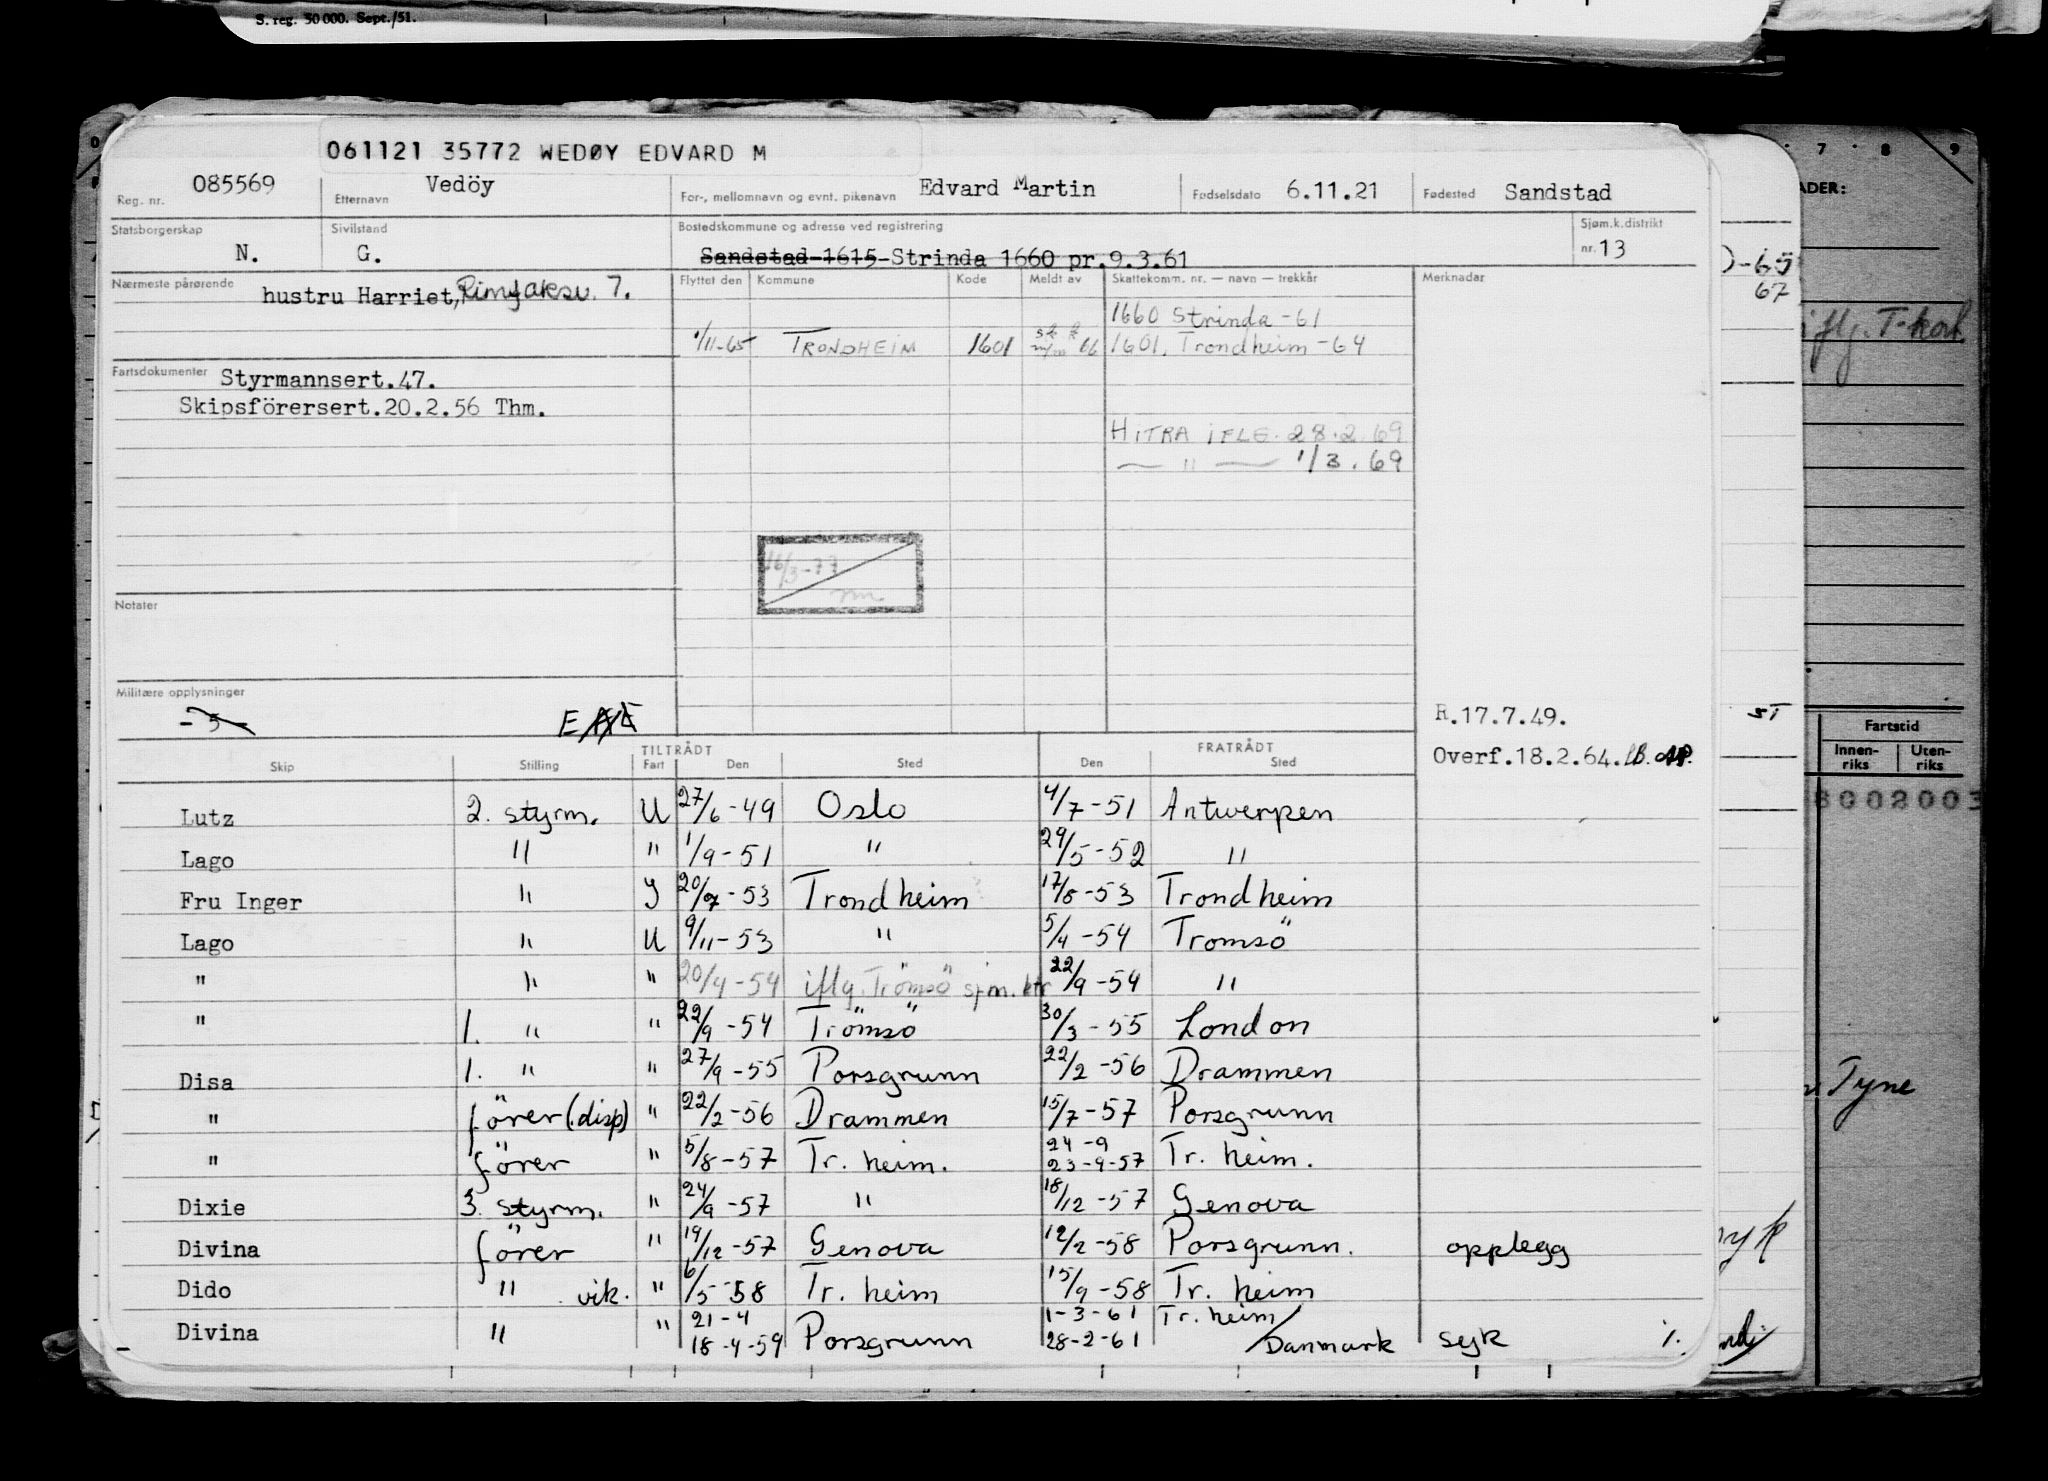 S. reg. 50 000. Sept./51.
061121 35772 WEDØY EDVARD M
Reg. nr. 085569 Etternavn Vedöy For-, mellomnavn og evnt. pikenavn Edvard Martin Fødselsdato 6.11.21 Fødested Sandstad
Statsborgerskap N. Sivilstand G. Bostedskommune og adresse ved registrering Sandstad 1615 Strinda 1660 pr.9.3.61 Sjøm.k.distrikt nr. 13
Nærmeste pårørende hustru Harriet, 7.
Flyttet den Kommune Kode Meldt av Skattekomm. nr. — navn — trekkår Merknadar
1660 Strinda -61
1/11-65 TRONDHEIM 1601 66 1601. Trondheim -64
Fartsdokumenter Styrmannsert.47.
Skipsförersert.20.2.56 Thm.
HITRA IFLG. 28.2.69
— " — 1/3.69
16/3-77
Notater
Militære opplysninger
- 5 - E
R.17.7.49.
Overf.18.2.64.
TILTRÅDT FRATRÅDT
Skip Stilling Fart Den Sted Den Sted
Lutz 2. styrm. U 27/6-49 Oslo 4/7-51 Antwerpen
Lago " " 1/9-51 " 29/5-52 "
Fru Inger " I 20/7-53 Trondheim 17/8-53 Trondheim
Lago " U 9/11-53 " 5/4-54 Tromsö
" " " 20/4-54 iflg. Tromsö sjm. ktr 22/9-54 "
" 1. " " 22/9-54 Trömsö 30/3-55 London
Disa 1. " " 27/9-55 Porsgrunn 22/2-56 Drammen
" förer (disp) " 22/2-56 Drammen 15/7-57 Porsgrunn
" förer " 5/8-57 Tr. heim. 24-9 23-9-57 Tr. heim.
Dixie 3. styrm. " 24/9-57 " 18/12-57 Genova
Divina förer " 19/12-57 Genova 12/2-58 Porsgrunn. opplegg
Dido " vik. " 6/5-58 Tr. heim 15/9-58 Tr. heim
Divina " " 21-4 18-4-59 Porsgrunn 1-3-61 28-2-61 Tr. heim/Danmark syk ./.
7 8 9
ADER:
-65
67
iflg. T-
ST
Fartstid
Innen-riks Uten-riks
8002003
Tyne